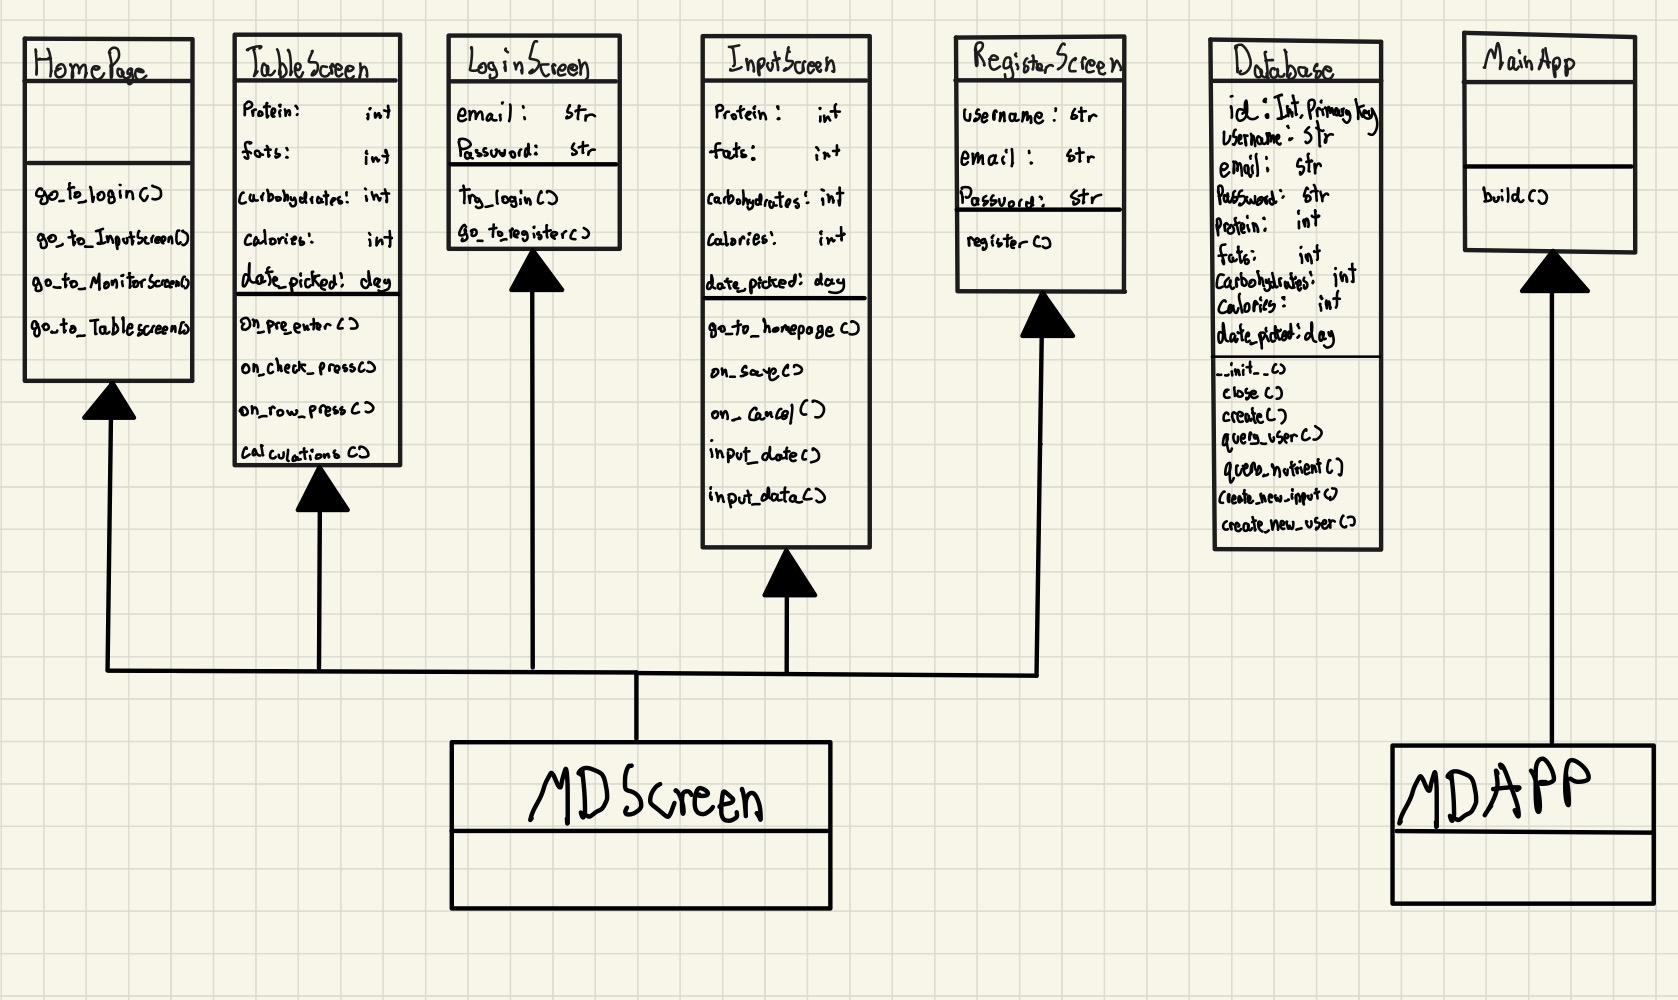 HomePage
go_to_login()
go_to_InputScreen()
go_to_MonitorScreen()
go_to_Tablescreen()
TableScreen
Protein: int
fats: int
carbohydrates: int
calories: int
date_picked: day
on_pre_enter()
on_check_press()
on_row_press()
calculations()
LoginScreen
email: str
Password: str
try_login()
go_to_register()
InputScreen
Protein: int
fats: int
carbohydrates: int
calories: int
date_picked: day
go_to_homepage()
on_save()
on_cancel()
input_date()
input_data()
RegisterScreen
username: str
email: str
Password: str
register()
Database
id: Int, Primary key
username: str
email: str
Password: str
Protein: int
fats: int
Carbohydrates: int
Calories: int
date_picked: day
__init__()
close()
create()
query_user()
query_nutrient()
create_new_input()
create_new_user()
MainApp
build()
MDScreen
MDAPP